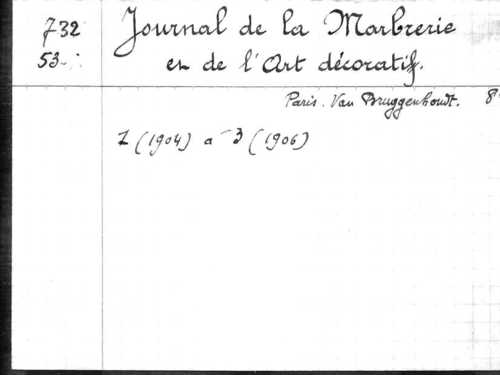 732
53-
Journal de la Marbrerie
et de l'Art décoratif.
Paris. Van Bruggenhoudt. 8
1 (1904) a 3 (1906)